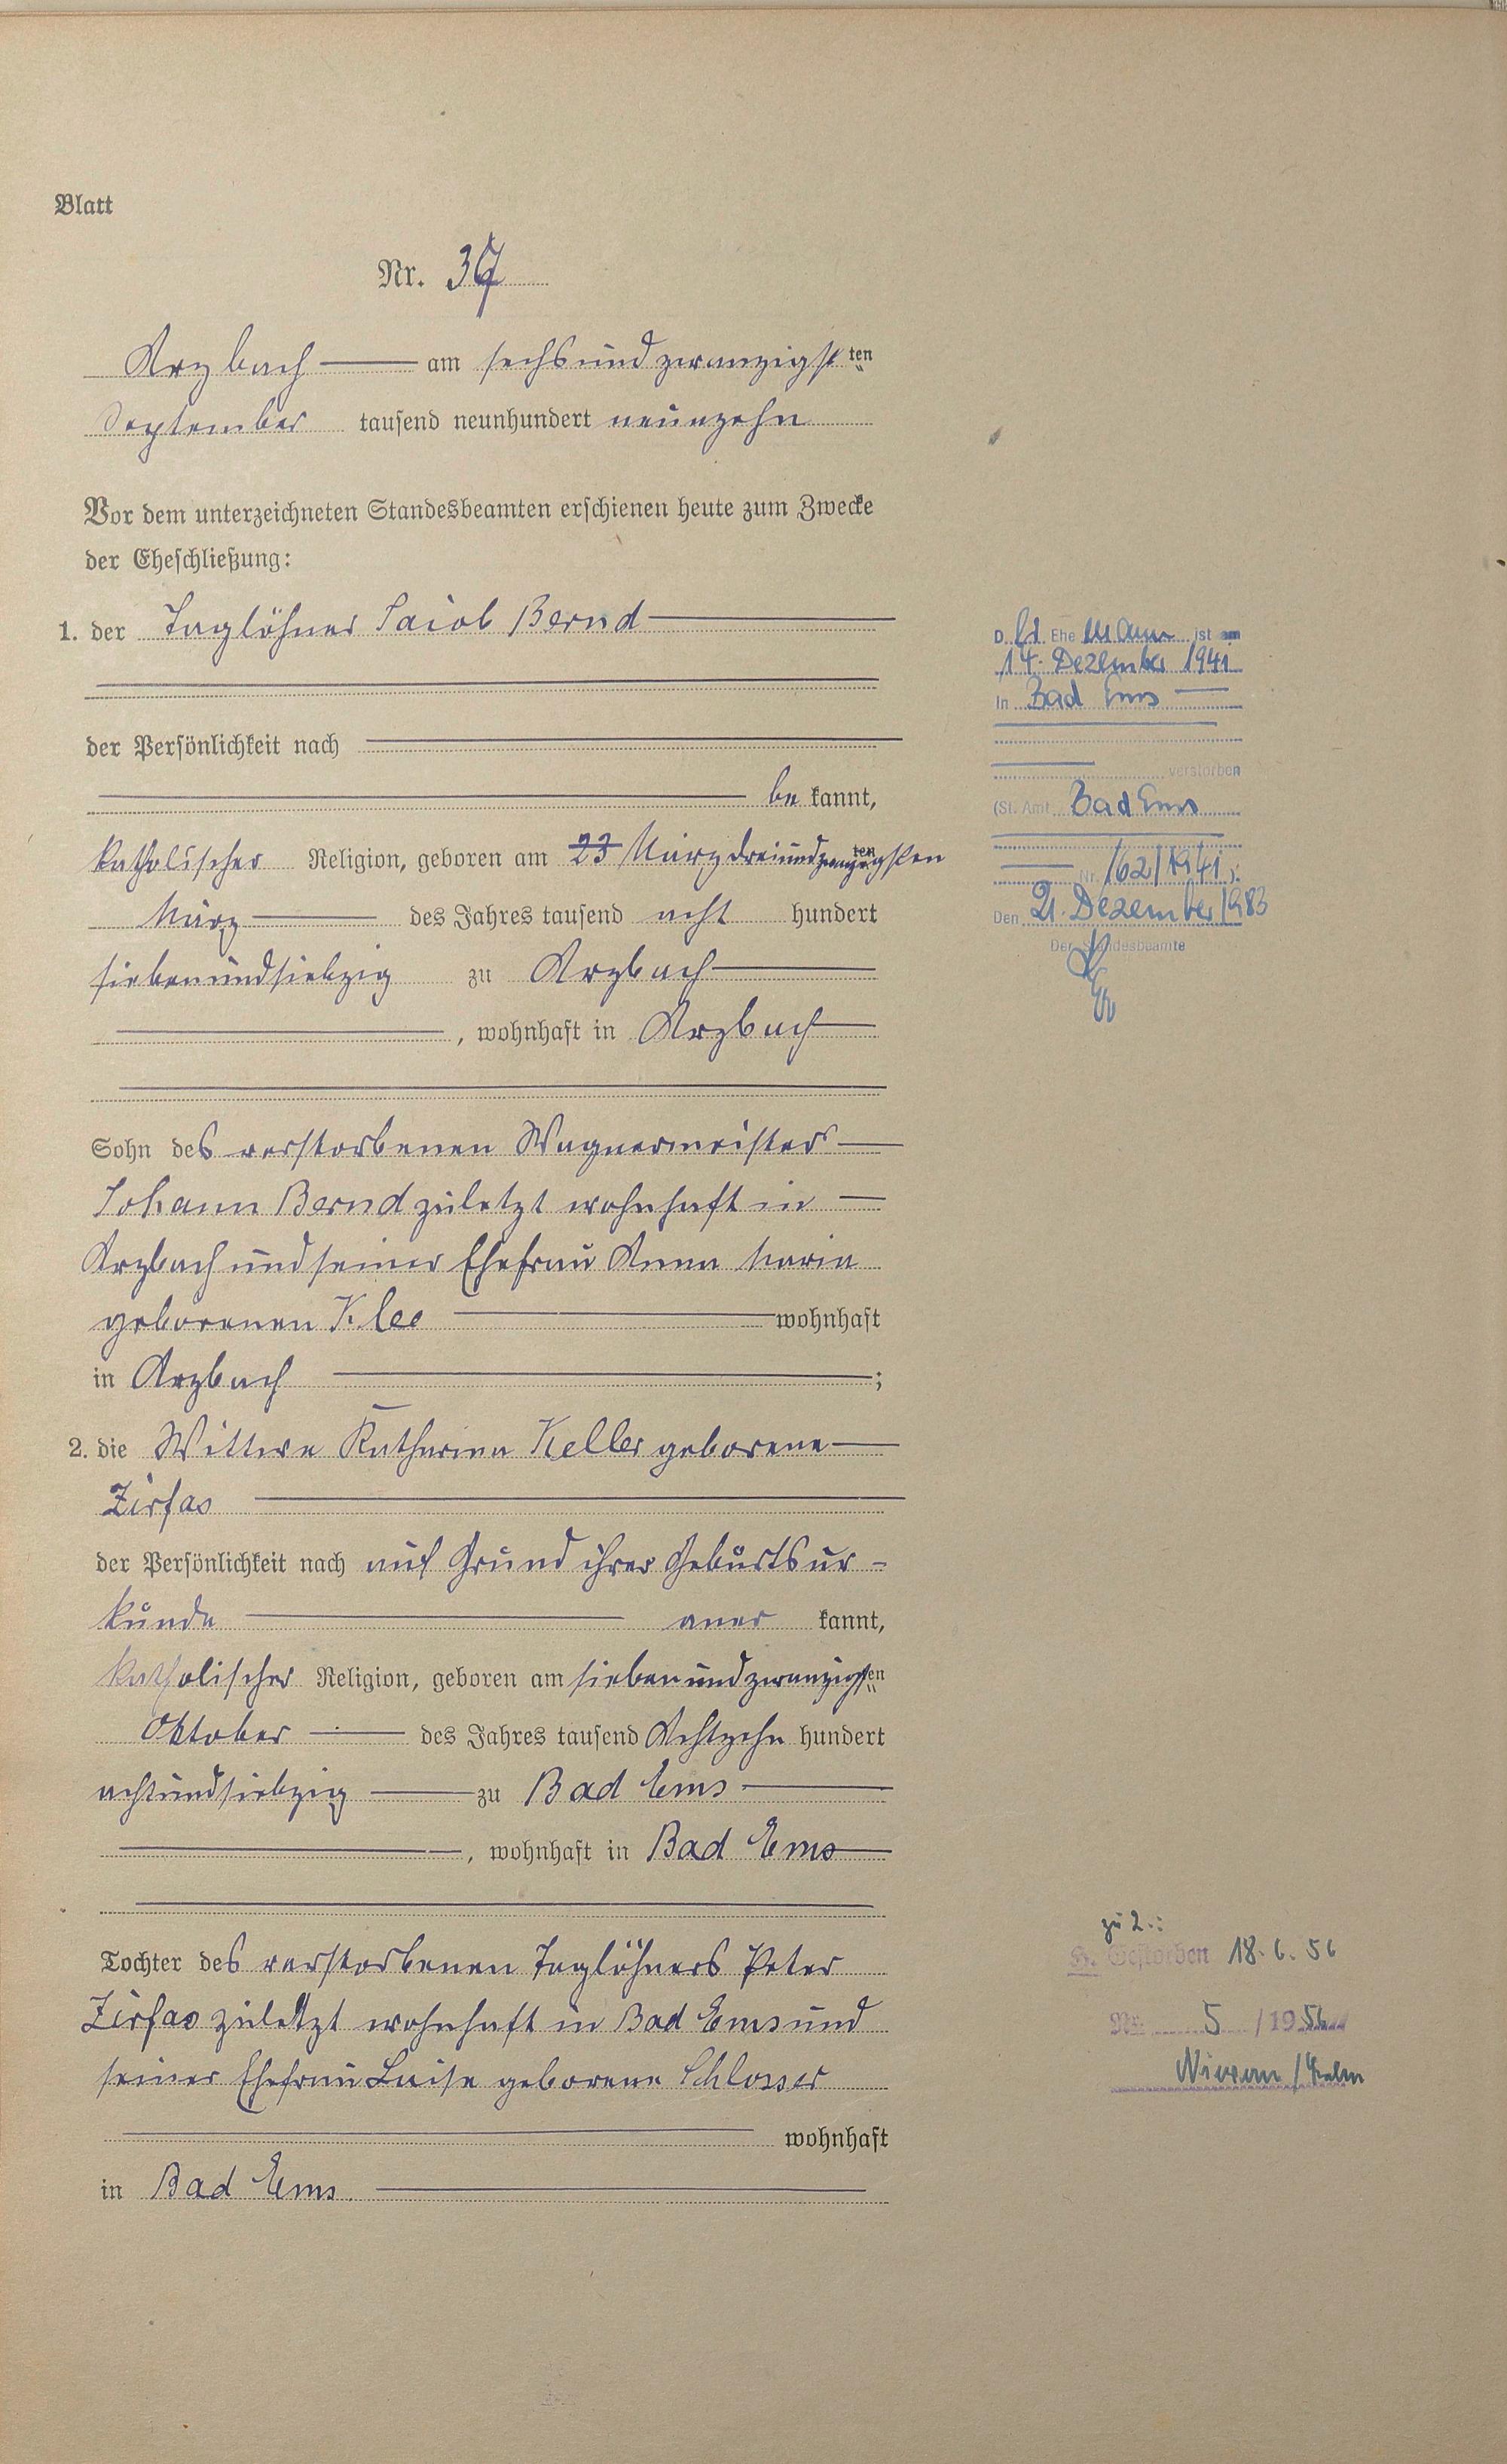 Blatt
Nr. 37
Arzbach am sechsundzwanzigsten
September tausend neunhundert neunzehn
Vor dem unterzeichneten Standesbeamten erschienen heute zum Zwecke
der Eheschließung:
1. der Taglöhner Jacob Bernd
der Persönlichkeit nach
be kannt,
katholischer Religion, geboren am 23 März dreiundzwanzigsten
März des Jahres tausend acht hundert
siebenundsiebzig zu Arzbach
, wohnhaft in Arzbach
Sohn des verstorbenen Wagnermeisters
Johann Bernd zuletzt wohnhaft in
Arzbach und seiner Ehefrau Anna Maria
geborenen Klee wohnhaft
in Arzbach ;
2. die Wittwe Katharina Keller geborene
Zirfas
der Persönlichkeit nach auf Grund ihrer Geburtsur-
kunde aner kannt,
katholischer Religion, geboren am siebenundzwanzigsten
Oktober des Jahres tausend Achtzehn hundert
achtundsiebzig zu Bad Ems
, wohnhaft in Bad Ems
Tochter des verstorbenen Taglöhners Peter
Zirfas zuletzt wohnhaft in Bad Ems und
seiner Ehefrau Luise geborene Schlosser
wohnhaft
in Bad Ems
D. Ehe mann ist am
14. Dezember 1941
in Bad Ems
verstorben
(St. Amt Bad Ems
Nr. 162/1941).
Den 21. Dezember 1983
Der Standesbeamte
zu 2.:
Gestorben 18.6.56
Nr. 5/1956